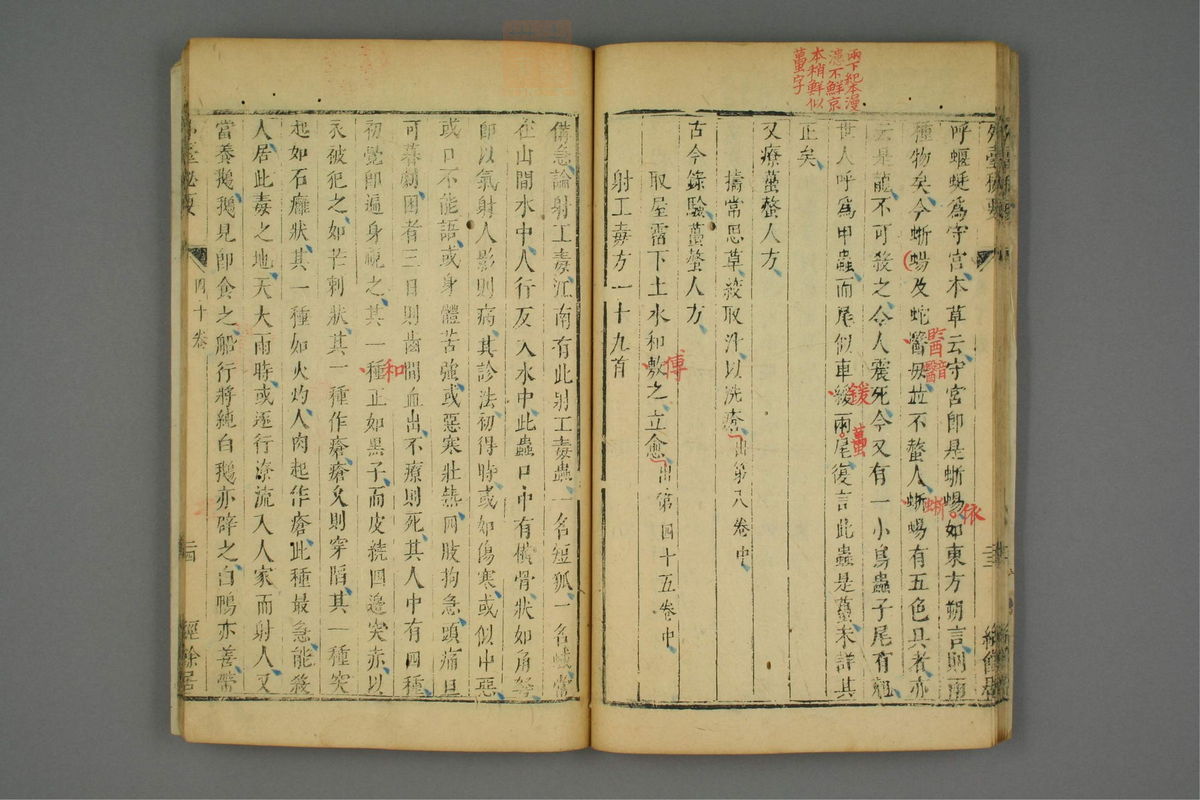 兩下紀本漫
漶不鮮京
本稍鮮似
蠆字
呼蝘蜓為守宮本草云守宮即是蜥蜴如東方朔言則兩
種物矣今蜥蜴及蛇醫毋並不螫人蜥蜴有五色具者亦
云是龍不可殺之令人震死今又有一小烏蟲子尾有
世人呼為甲蟲而尾似車緩兩尾復言此蟲是蠆未詳其
正矣
又療蠆螫人方
擣常思草絞取汁以洗瘡出第八卷中
古今錄驗蠆螫人方
取屋霤下土水和敷之立愈出第四十五卷中
射工毒方一十九首
醫
依
蜥
緩
蠆
傅
備急論射工毒江南有此射工毒蟲一名短狐一名蜮常
在山間水中人行及入水中此蟲口中有橫骨狀如角弩
即以氣射人影則病其診法初得時或如傷寒或似中惡
或口不能語或身體苦強或惡寒壯熱四肢拘急頭痛旦
可暮劇困者三日則齒間血出不療則死其人中有四種
初覺即遍身視之其一種正如黑子而皮繞四邊突赤以
衣被犯之如芒刺狀其一種作瘡瘡久則穿陷其一種突
起如石癰狀其一種如火灼人肉起作瘡此種最急能殺
人居此毒之地天大雨時或逐行潦流入人家而射人又
當養鵝鵝見即食之船行將純白鵝亦辟之白鴨亦善
和
外臺秘要
四十卷
經餘居